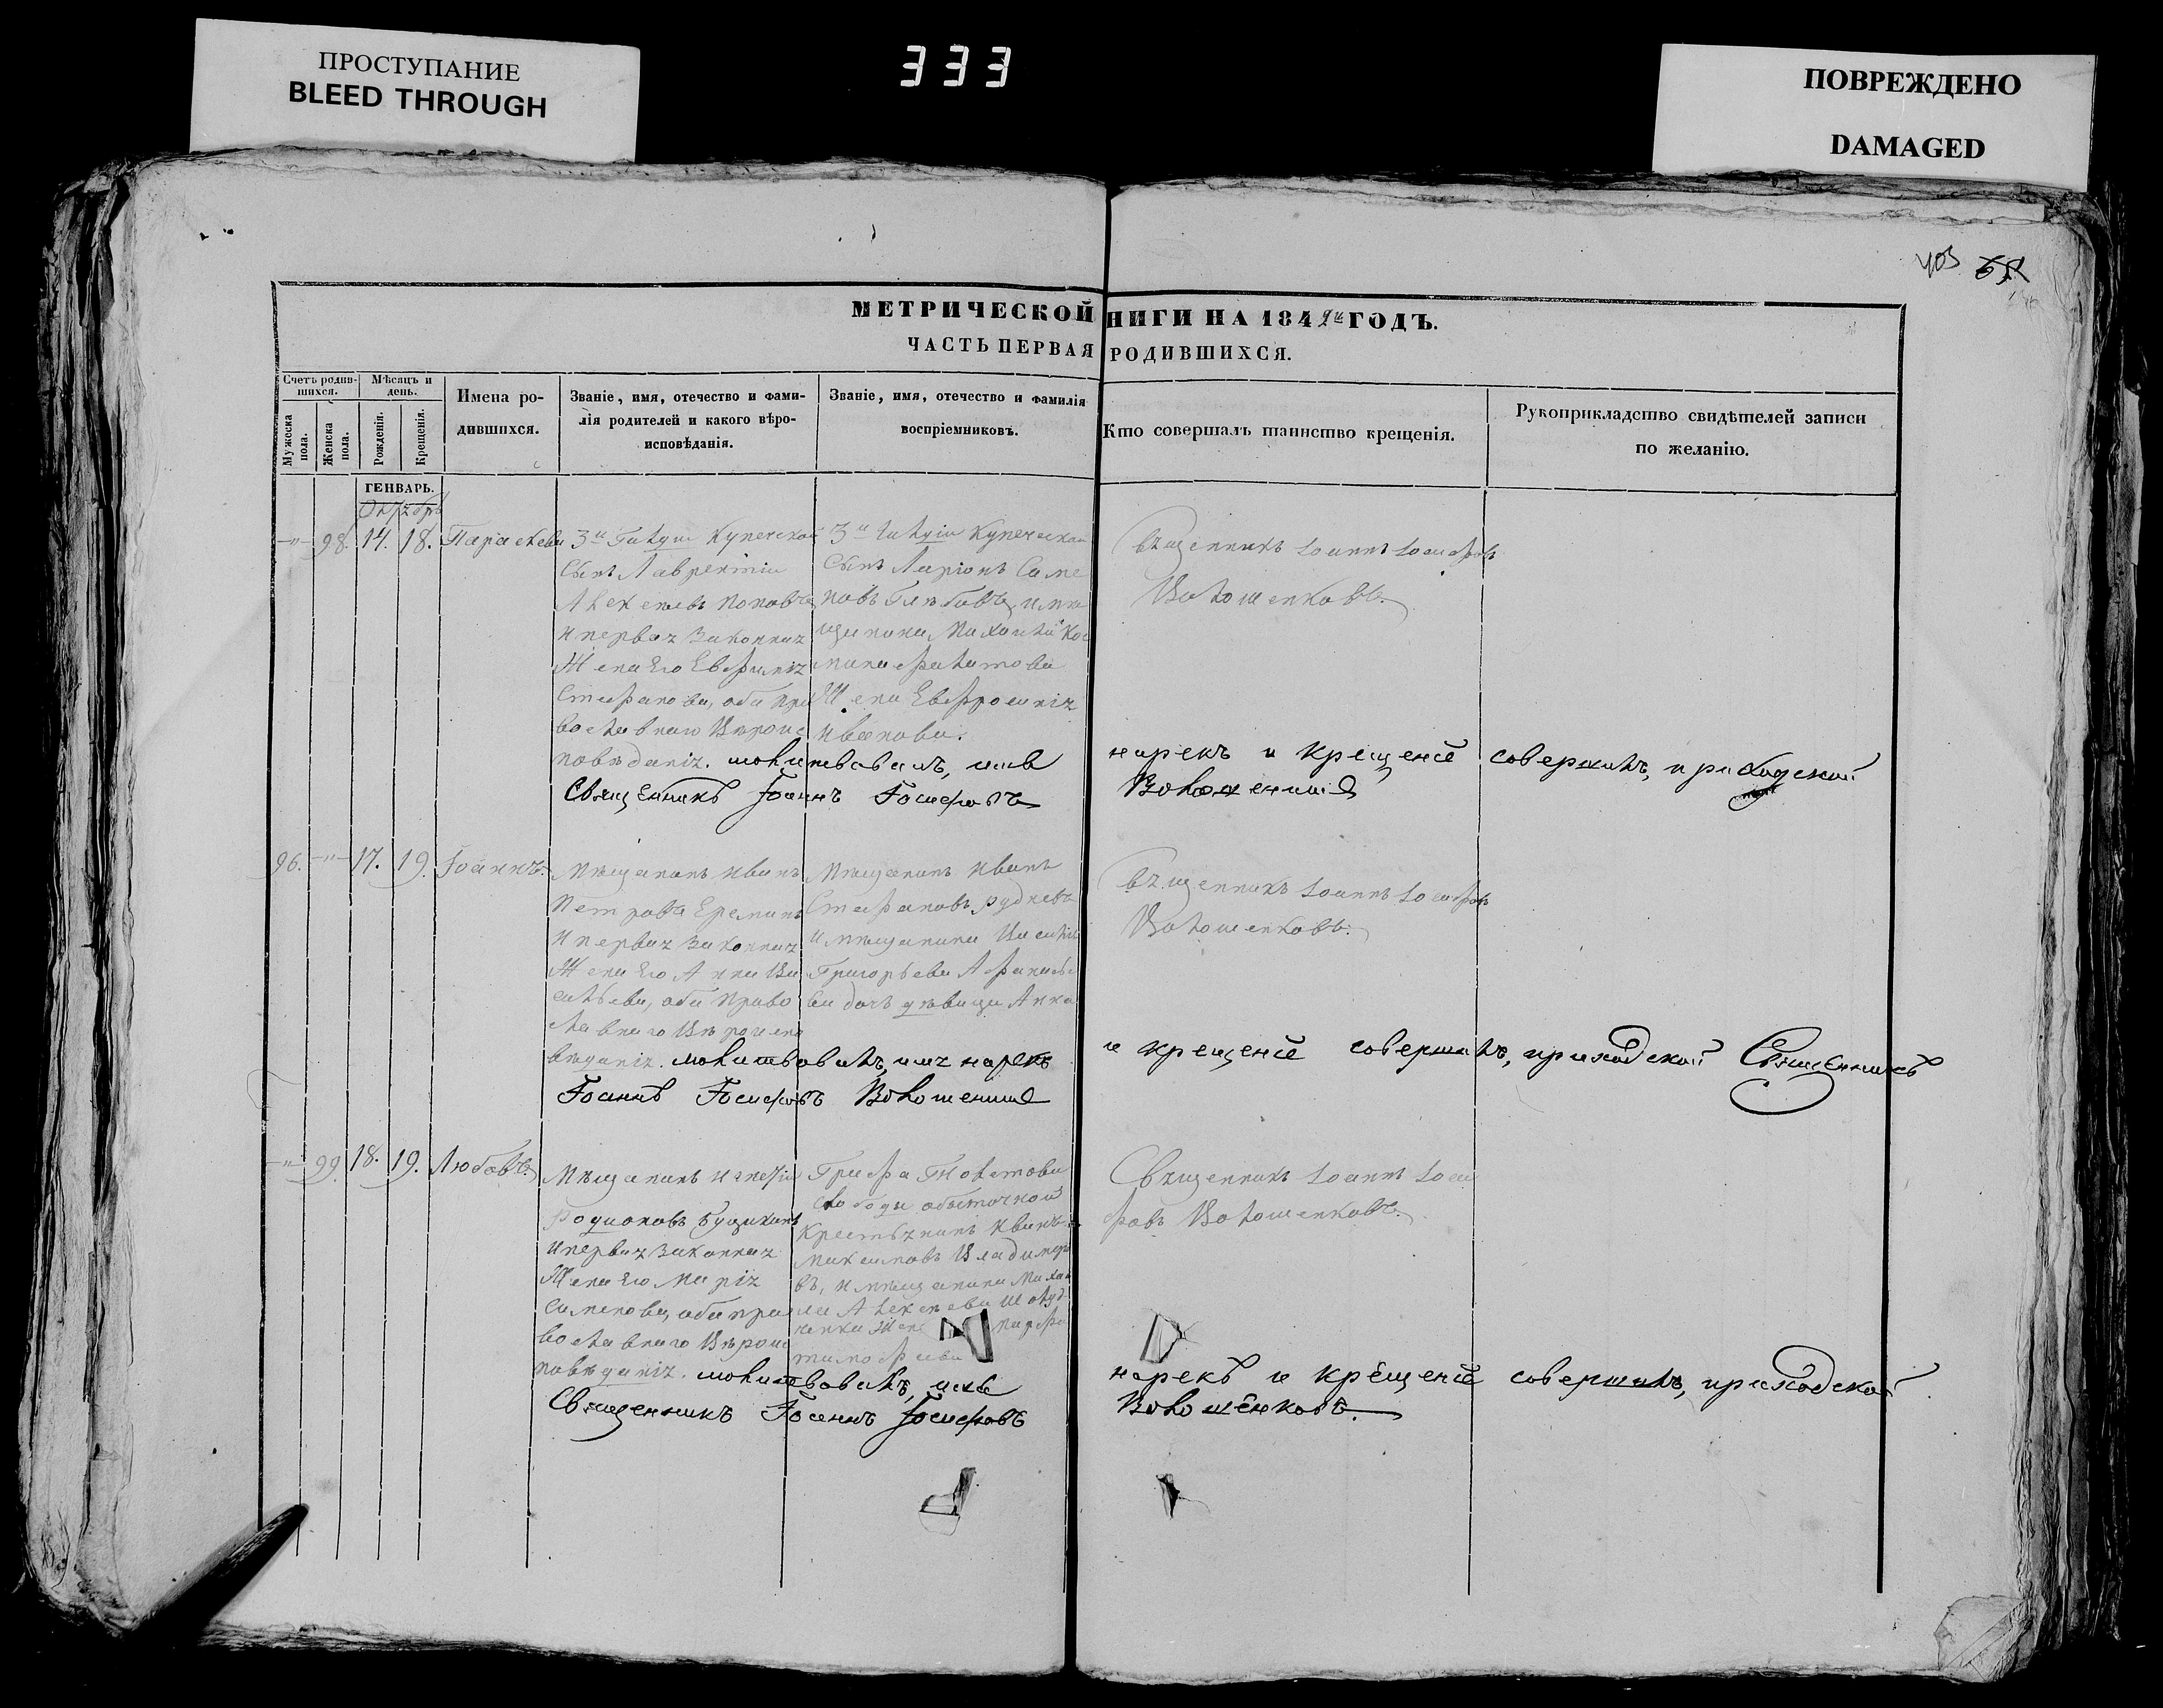 ПРОСТУПАНИЕ
BLEED THROUGH
333
ПОВРЕЖДЕНО
DAMAGED
403
МЕТРИЧЕСКОЙ НИГИ НА 184 ГОДЪ.
ЧАСТЬ ПЕРВАЯ РОДИВШИХСЯ.
Счетъ родив-
шихся.
Мѣсяцъ и
день.
Мужеска
пола.
Женска
пола.
Рожденія.
Крещенія.
Имена ро-
дившихся.
Званіе, имя, отечество и фами-
лія родителей и какого вѣро-
исповѣданія.
Званіе, имя, отечество и фамилія
воспріемниковъ.
Кто совершалъ таинство крещенія.
Рукоприкладство свидѣтелей записи
по желанію.
ГЕНВАРЬ.
98. 14. 18. Параскева
3й Гильдіи Купеческой
Сынъ Лаврентій
Алексеевъ Поповъ
и первая Законная
Жена Его Евфимія
Стефанова, оба пра
вославнаго Вѣроис
повѣданія. молитвовалъ, имя
Священникъ Іоаннъ Іосифовъ
3й Гильдіи Купеческой
Сынъ Ларіонъ Симе
новъ Глѣбовъ, и мѣ
щанина Михаила
Филатова
Жена Евфросинія
Иванова.
Священникъ Іоаннъ Іосифовъ
Волошенковъ.
нарекъ и крещеніе совершилъ, приходской
96. 17. 19. Іоаннъ.
Мѣщанинъ Иванъ
Петровъ Ереминъ
и первая Законная
Жена Его Анна Ва
сильева, оба Право
славнаго Вѣроиспо
вѣданія. молитвовалъ, имя нарекъ
Іоаннъ Іосифовъ
Мѣщанинъ Иванъ
Стефановъ Рудневъ
и мѣщанина Василія
Григорьева Афанасье
ва дочь дѣвица Анна
Священникъ Іоаннъ Іосифовъ
Волошенковъ.
и крещеніе совершилъ, приходской Священникъ
99. 18. 19. Любовь.
Мѣщанинъ
Родіоновъ
и первая Законная
Жена Его Марія
Симеонова, оба пра
вославнаго Вѣроис
повѣданія. молитвовалъ, имя
Священникъ Іоаннъ Іосифовъ
Графа Толстова
слободы
Крестьянинъ Иванъ
Максимовъ Владимиро
въ, и мѣщанина Миха
ила Алексеева
Жена Марфа
Тимофеева
Священникъ Іоаннъ Іоси
фовъ Волошенковъ.
нарекъ и крещеніе совершилъ, приходской
Волошенковъ.